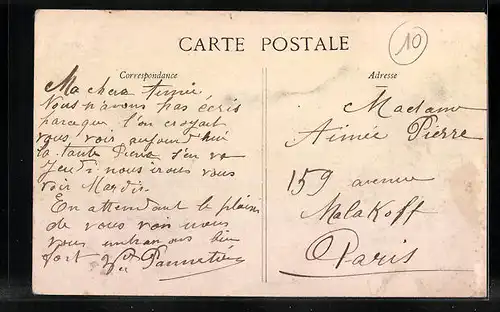 CARTE POSTALE
10
Correspondance
Ma chere Aimée
Nous n'avons pas écris
parceque l'on croyait
vous voir aujourd'hui
la tante s'en va
Jeudi nous irons vous
voir Mardi
En attendant le plaisir
de vous voir nous
vous embrassons bien
fort
Adresse
Madame
Aimée Pierre
159 avenue
Malakoff
Paris